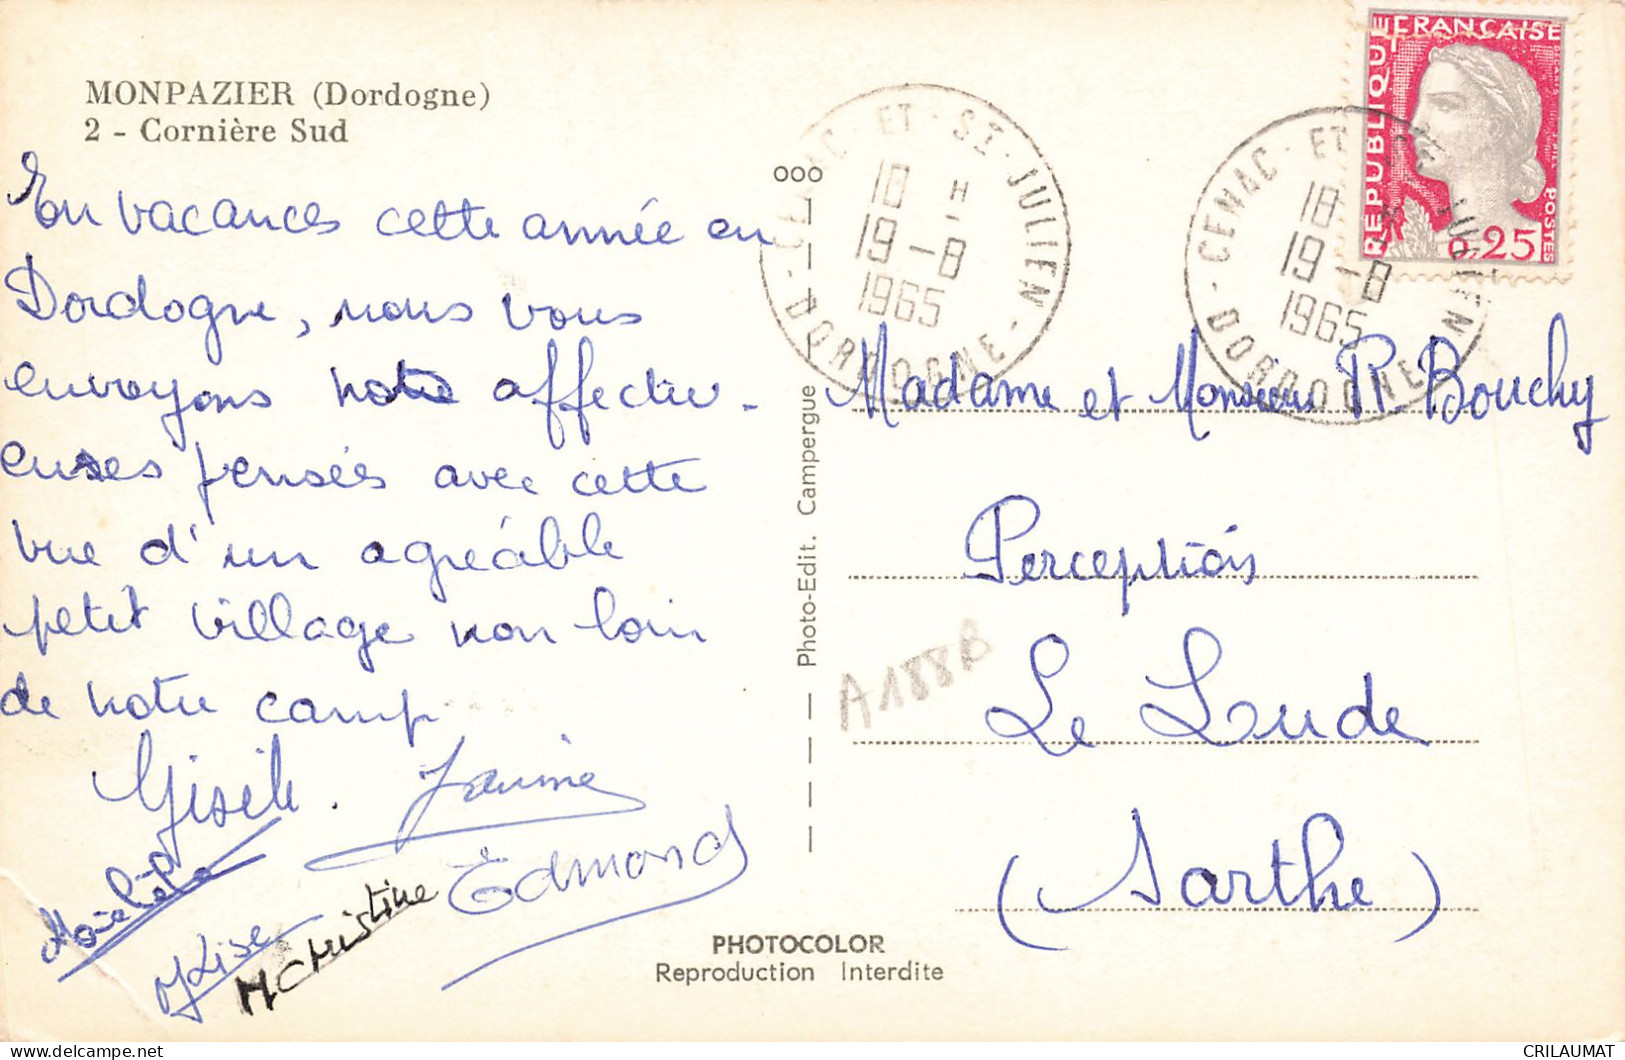 MONPAZIER (Dordogne)
2 - Cornière Sud
En vacances cette année en
Dordogne, nous vous
envoyons nos affectu-
euses pensées avec cette
vue d'un agréable
petit village non loin
de notre camp
Gisèle. Janine
Edmond
M Christine
OOO
Photo-Edit. Campergue
CENAC - ET - ST - JULIEN - DORDOGNE
18 H
19 - 8
1965
CENAC - ET - ST - JULIEN - DORDOGNE
18 H
19 - 8
1965
REPUBLIQUE FRANÇAISE
POSTES
0,25
Madame et Monsieur R. Bouchy
Perception
Le Lude
(Sarthe)
A188B
PHOTOCOLOR
Reproduction Interdite
delcampe.net
CRILAUMAT